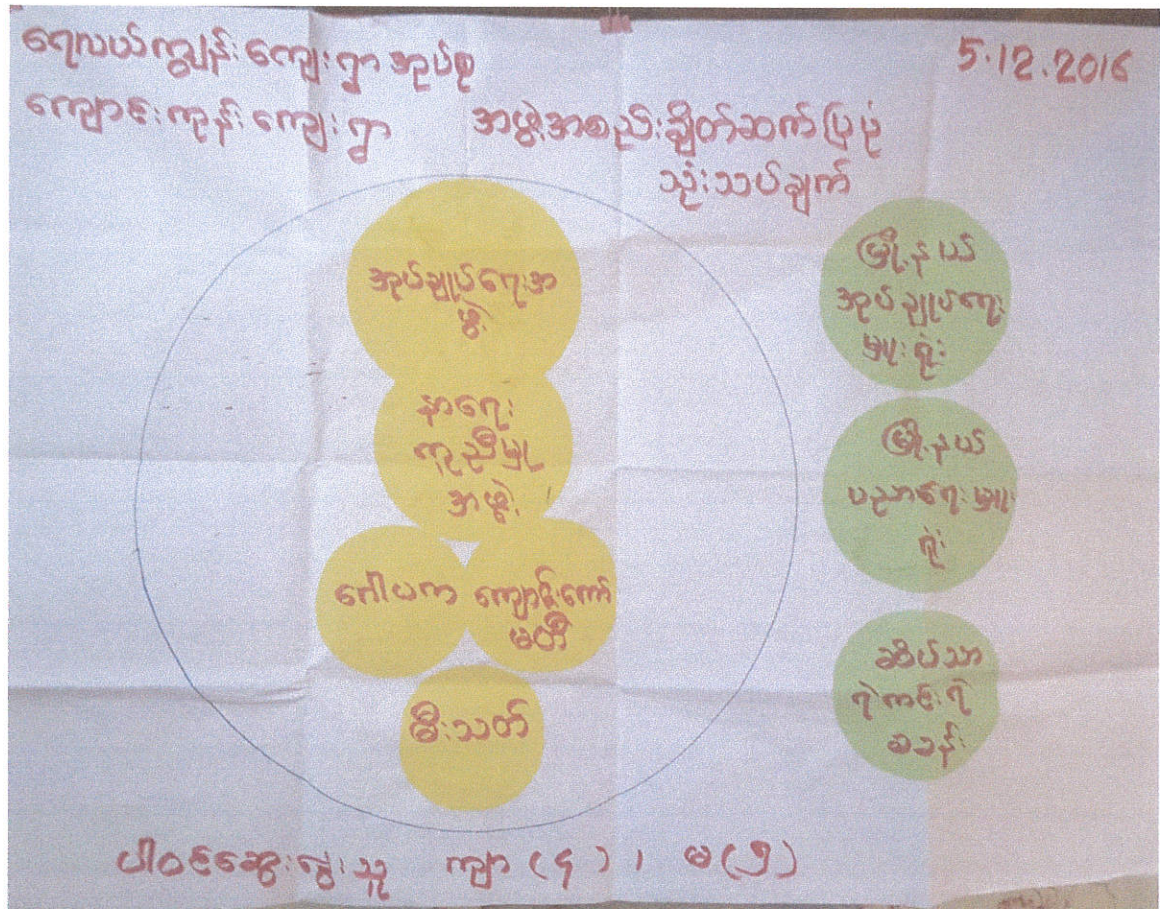 ရေလယ်ကျွန်းကျေးရွာအုပ်စု
5.12.2016
ကျောင်းကုန်းကျေးရွာ
အဖွဲ့အစည်းချိတ်ဆက်ပြပုံ
သုံးသပ်ချက်
အုပ်ချုပ်ရေးအ
ဖွဲ့
နာရေး
ကူညီမှု
အဖွဲ့
ဂေါပက
ကျောင်းကော်
မတီ
မီးသတ်
မြို့နယ်
အုပ်ချုပ်ရေး
မှူးရုံး
မြို့နယ်
ပညာရေးမှူး
ရုံး
ဆိပ်သာ
ရဲကင်းရဲ
စခန်း
ပါဝင်ဆွေးနွေးသူ ကျာ (၄) ၊ မ (၅)